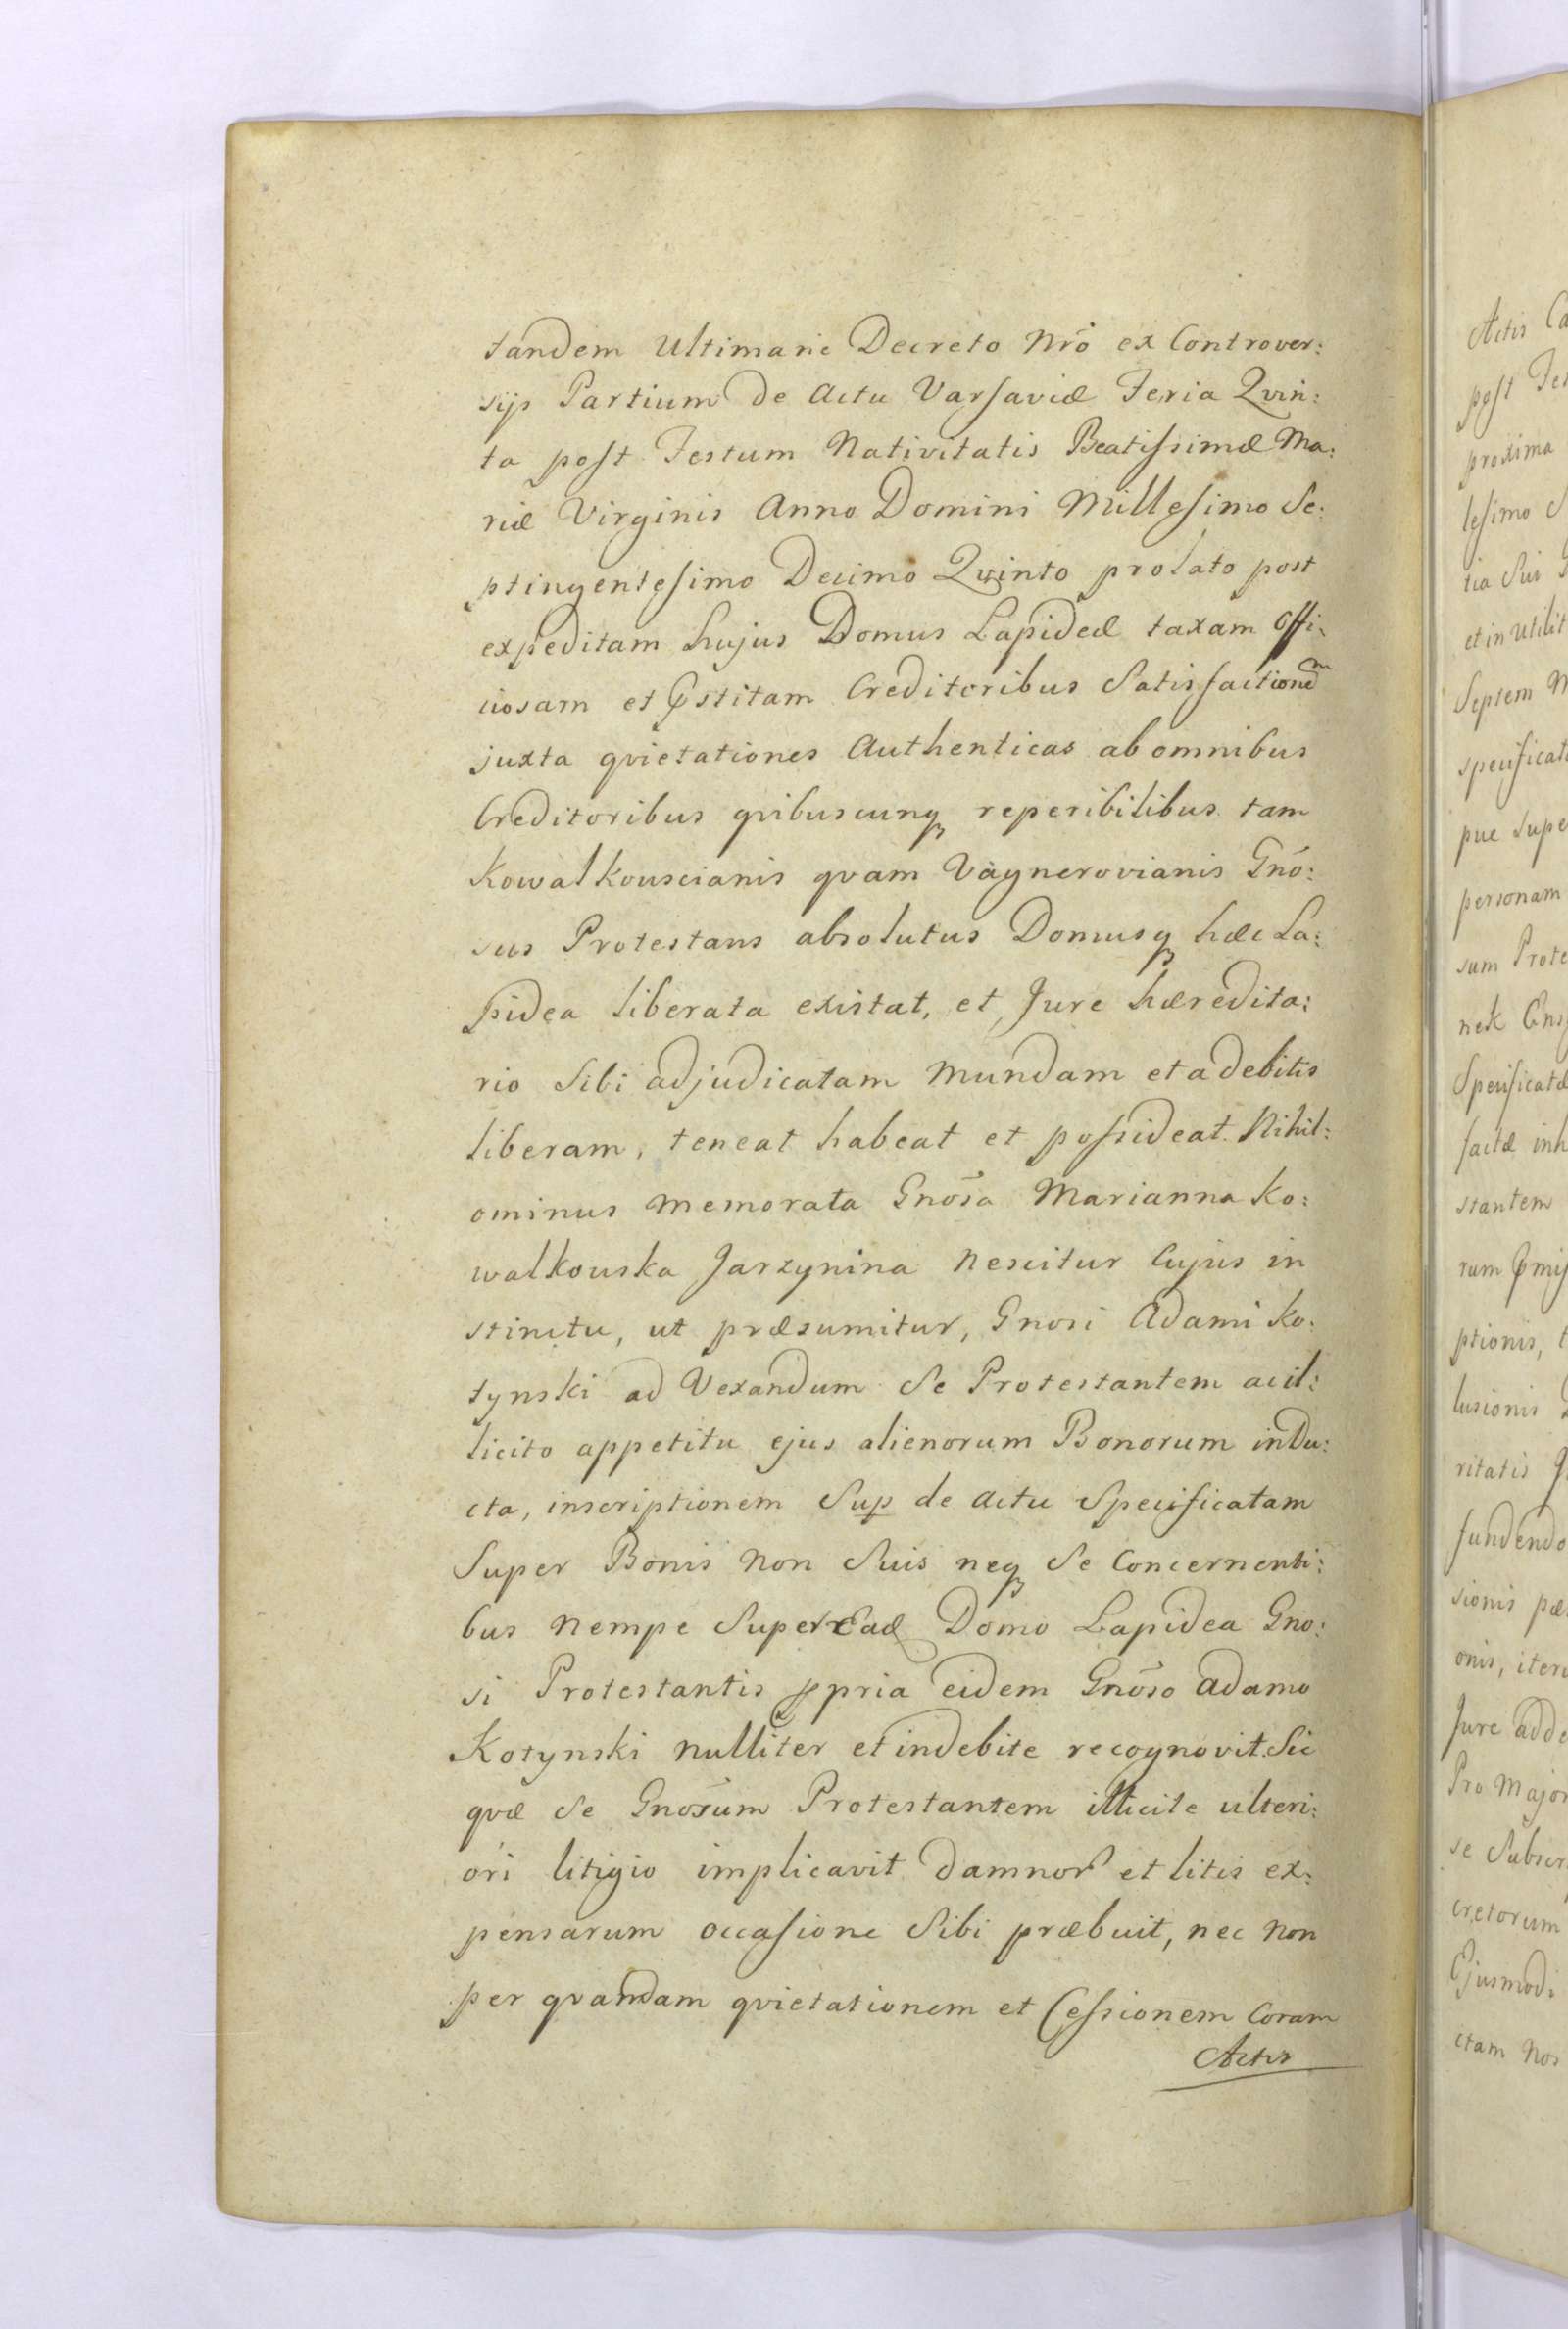 tandem Ultimarie Decreto Nr̃o ex Controver:
sijs Partium de Actu Varsaviæ Feria Qvin:
ta post Festum Nativitatis Beatissimæ Ma:
riæ Virginis Anno Domini Millesimo Se:
ptingentesimo Decimo Qvinto prolato post
expeditam hujus Domus Lapideæ taxam Offi:
ciosam et pstitam Creditoribus Satisfactionem
juxta qvietationes Authenticas ab omnibus
Creditoribus qvibuscunq reperibilibus tam
Kowalkouscianis qvam Vagnerovianis Gno:
sus Protestans absolutus Domusq hæc La:
pidea liberata existat, et Jure hæredita:
rio Sibi adjudicatam Mundam et a debitis
liberam, teneat habeat et possideat. Nihil:
ominus memorata Gnõsa Marianna Ko:
walkouska Jarzynina Nescitur Cujus in
stinctu, ut præsumitur, Gnosi Adami Ko:
tynski ad Vexandum Se Protestantem ac il:
licito appetitu ejus alienorum Bonorum indu:
cta, inscriptionem Sup de actu Specificatam
Super Bonis Non Suis neq Se Concernenti:
bus Nempe Super Ead Domo Lapidea Gno:
si Protestantis ppria eidem Gnõso Adamo
Kotynski nulliter et indebite recognovit. Sic
qvæ Se Gnõsum Protestantem illicite ulteri:
ori litigio implicavit damnor et litis ex:
pensarum occasione Sibi præbuit, nec non
per qvandam qvietationem et Cessionem Coram
Actis
Actis Ca
post Fes
proxima
lesimo S
tia Sui
et in Utilit
Septem M
specificat
pue Supe
personam
sum Prote
nek
Specificatæ
factæ inh
stantem
rum
ptionis,
lusionis
ritatis
fundendo
sionis
onis, iter
Jure adde
Pro Major
se Subscr
cretorum
Ejusmodi
ctam Nos